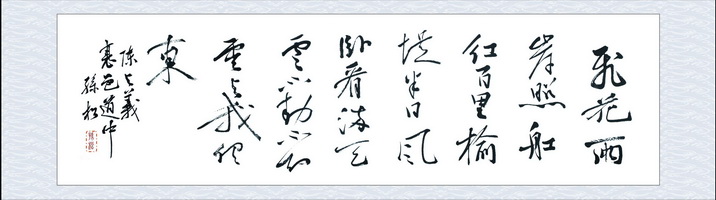 飛花两
岸照船
红百里榆
堤半日风
卧看满天
云不动不知
云与我俱
東
陈与义
襄邑道中
孫松